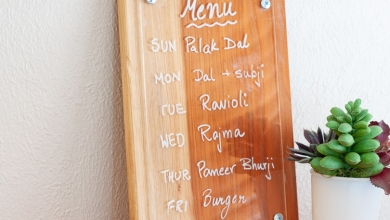 Menu
SUN Palak Dal
MON Dal → subji
TUE Ravioli
WED Rajma
THUR Paneer Bhurji
FRI Burger